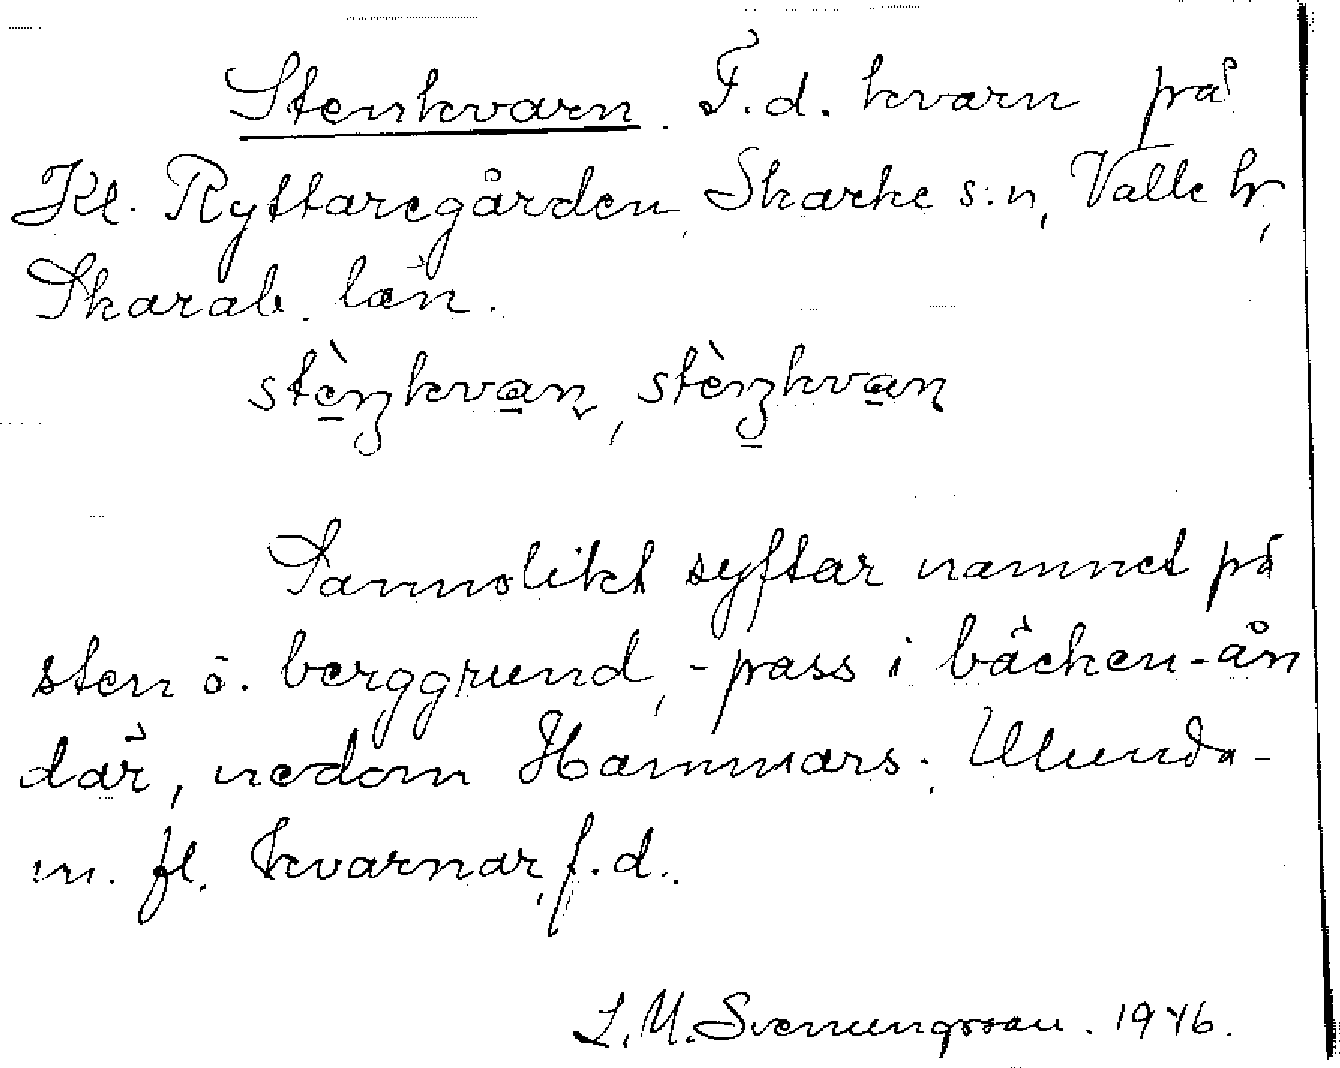 Stenkvarn. F.d. kvarn på
Kl. Ryttaregården, Skarke s:n, Valle hr,
Skarab. län.
stèŋkvaɳ, stèŋkvaɳ
Sannolikt syftar namnet på
sten ö. berggrund, -pass i bäcken-ån
där, nedom Hammars. Ulunda-
m. fl. kvarnar, f.d..
L.M. Svenungsson. 1946.